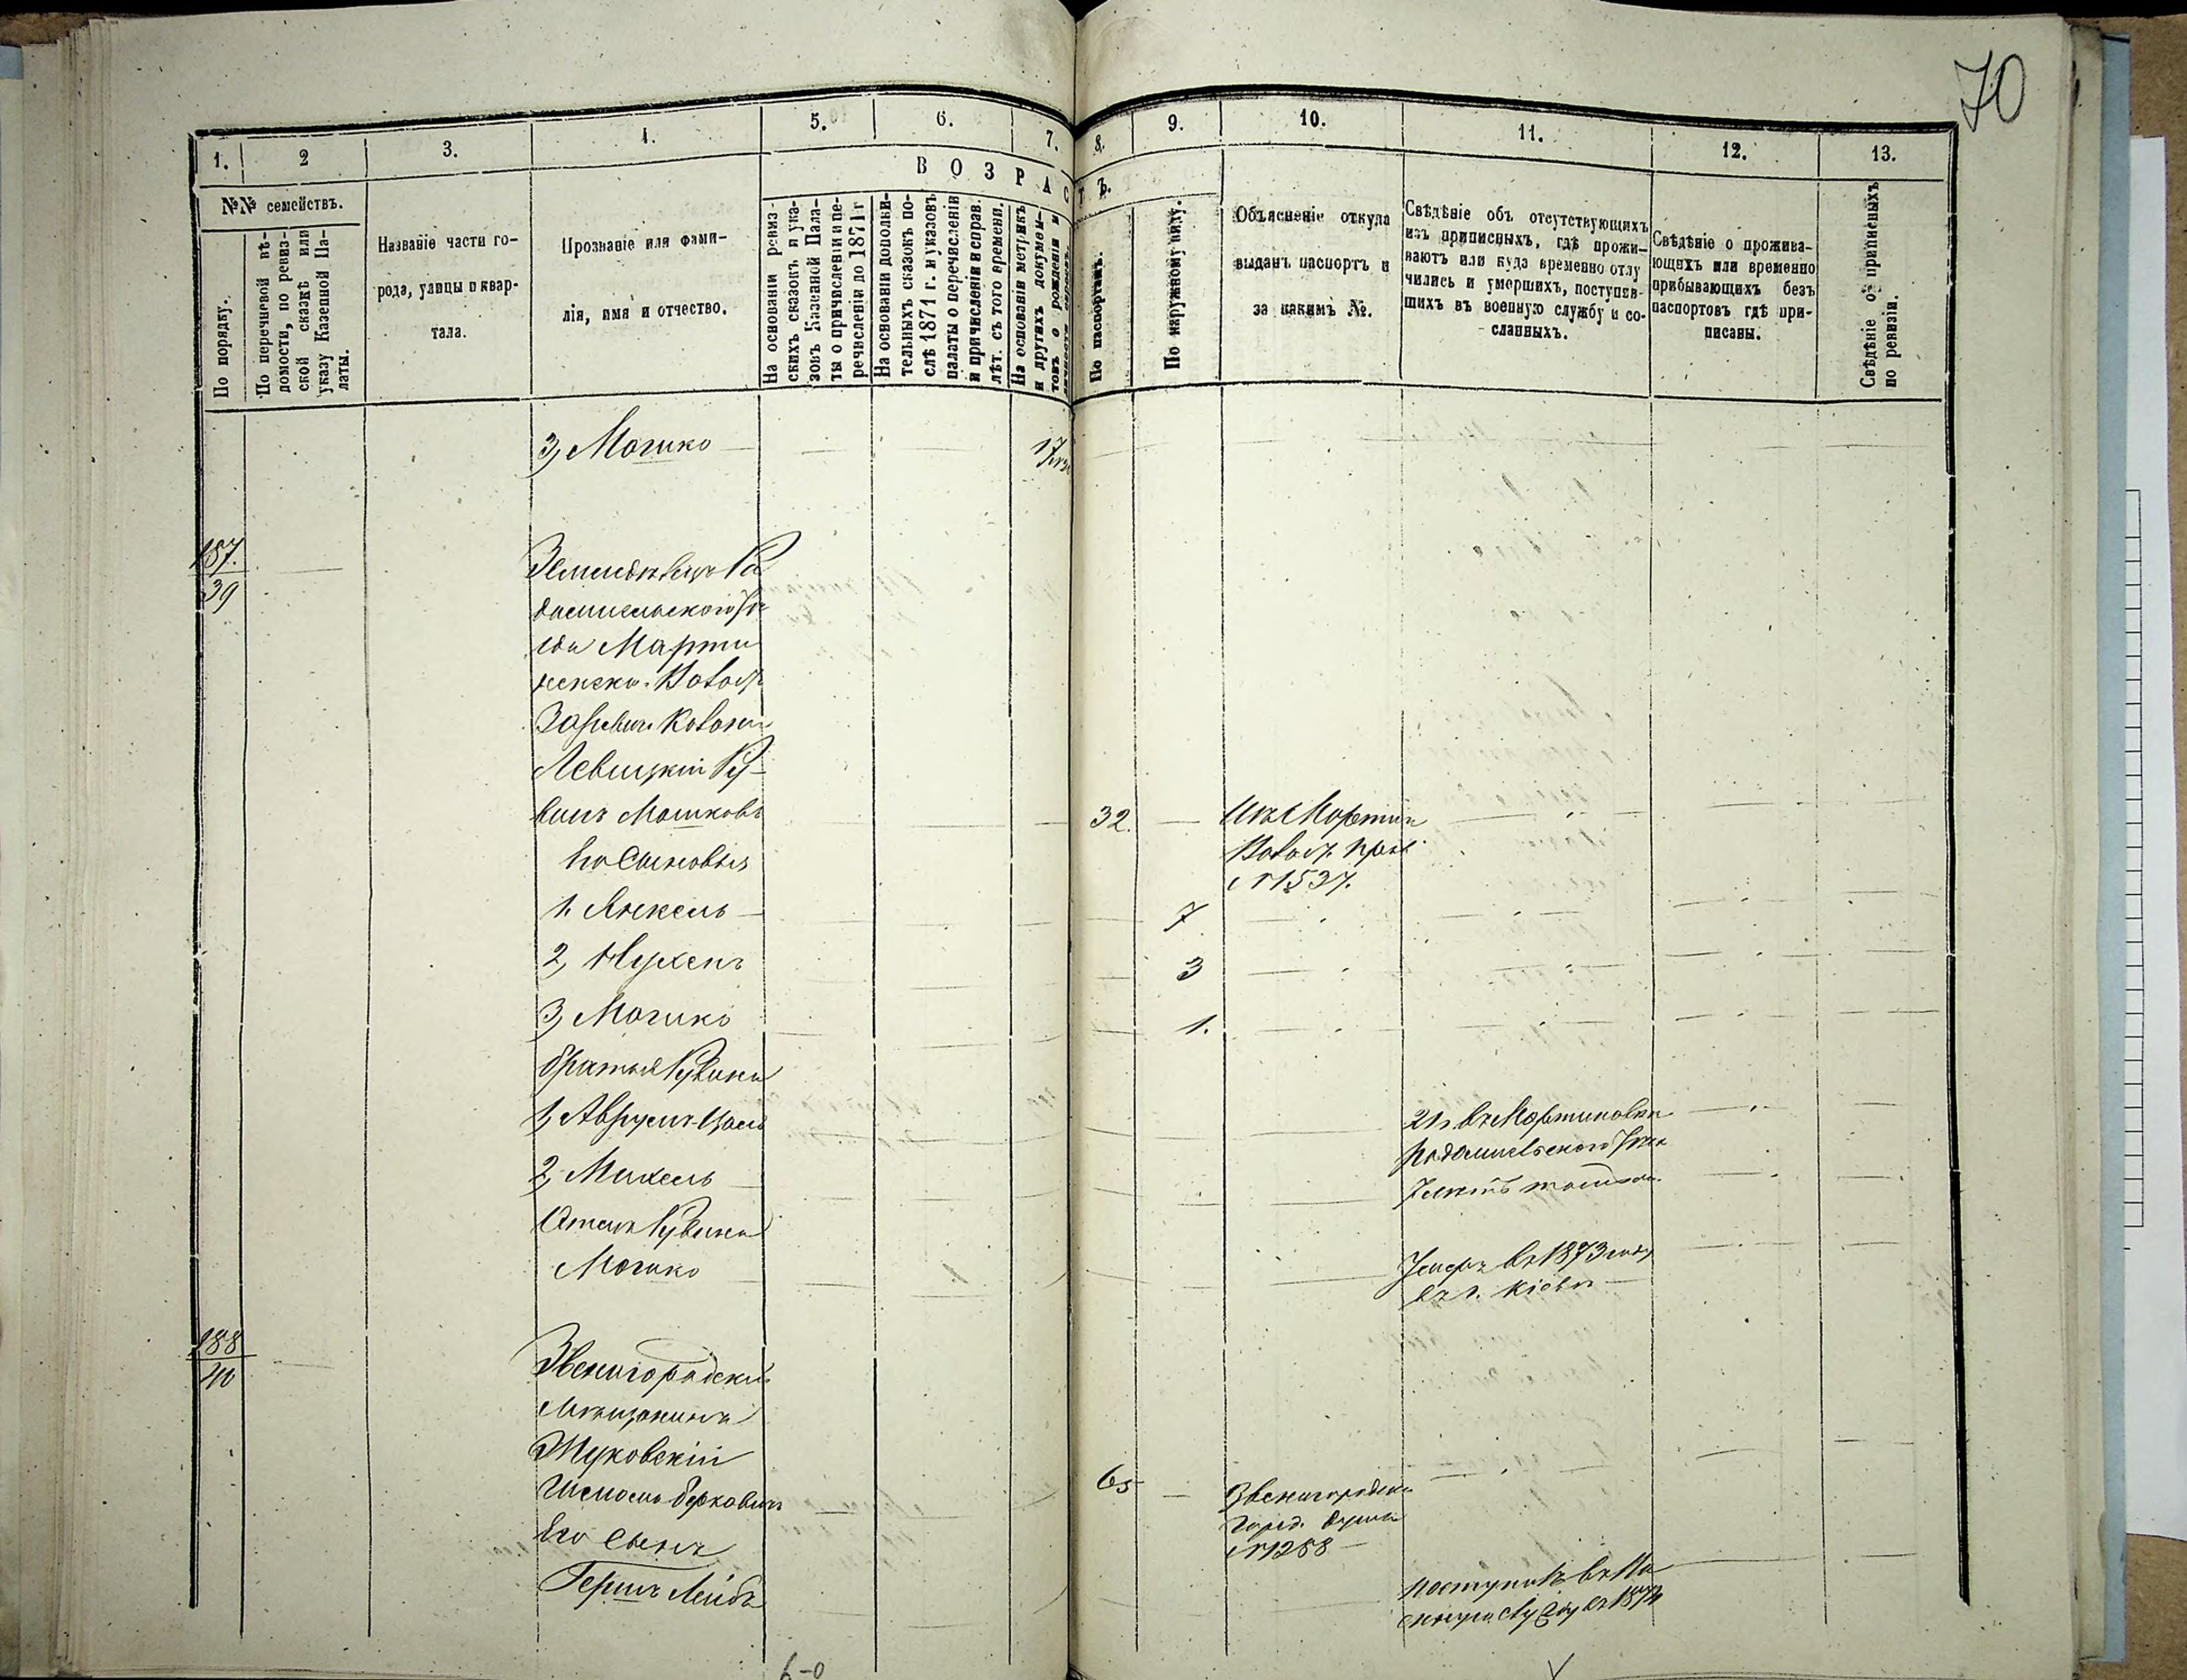 70
1.
2
3.
4.
5.
6.
7.
8.
9.
10.
11.
12.
13.
ВОЗРАСТЪ.
№№ семействъ.
По порядку.
По перечневой вѣ-
домости, по ревиз-
ской сказкѣ или
указу Казенной Па-
латы.
Названіе части го-
рода, улицы и квар-
тала.
Прозваніе или фами-
лія, имя и отчество.
На основаніи ревиз-
скихъ сказокъ и ука-
зовъ Казенной Пала-
ты о причисленіи и пе-
речисленіи до 1871 г
На основаніи дополни-
тельныхъ сказокъ по-
слѣ 1871 г. и указовъ
палаты о перечисленіи
и причисленіи и справ.
лѣт. съ того времени.
На основаніи метрикъ
и другихъ докумен-
товъ о рожденіи и
По паспортамъ.
По наружному виду.
Объясненіе откуда
выданъ паспортъ и
за какимъ №.
Свѣдѣніе объ отсутствующихъ
изъ приписныхъ, гдѣ прожи-
ваютъ или куда временно отлу
чились и умершихъ, поступив-
шихъ въ военную службу и со-
сланныхъ.
Свѣдѣніе о прожива-
ющихъ или временно
прибывающихъ безъ
паспортовъ гдѣ при-
писаны.
Свѣдѣніе о приписныхъ
по ревизіи.
3, Мошко 17
187.
39
Земледѣлецъ Ра
домысльского Уѣ
зда Марти
новско
Левицкій Ру-
винъ Мошковъ 32. Изъ Мартин
№ 1537.
Его Сыновья
1. Янкель 7
2, Нухенъ 3
3, Мошко 1.
братья Рувина
1, Аврумъ 21 г. въ Мартиновкѣ
Радомысльского Уѣзда
2, Михель
Отецъ Рувина
Мошко 1 Умеръ въ 1873 году
въ г. Кіевѣ
188
40
Звенигородскій
Мѣщанинъ
Жуковскій
Берковичъ 65 Звенигородск
Город. Дума
№ 1288
Его Сынъ
Гершъ Лейба поступилъ въ Во
службу въ 1874
6-0